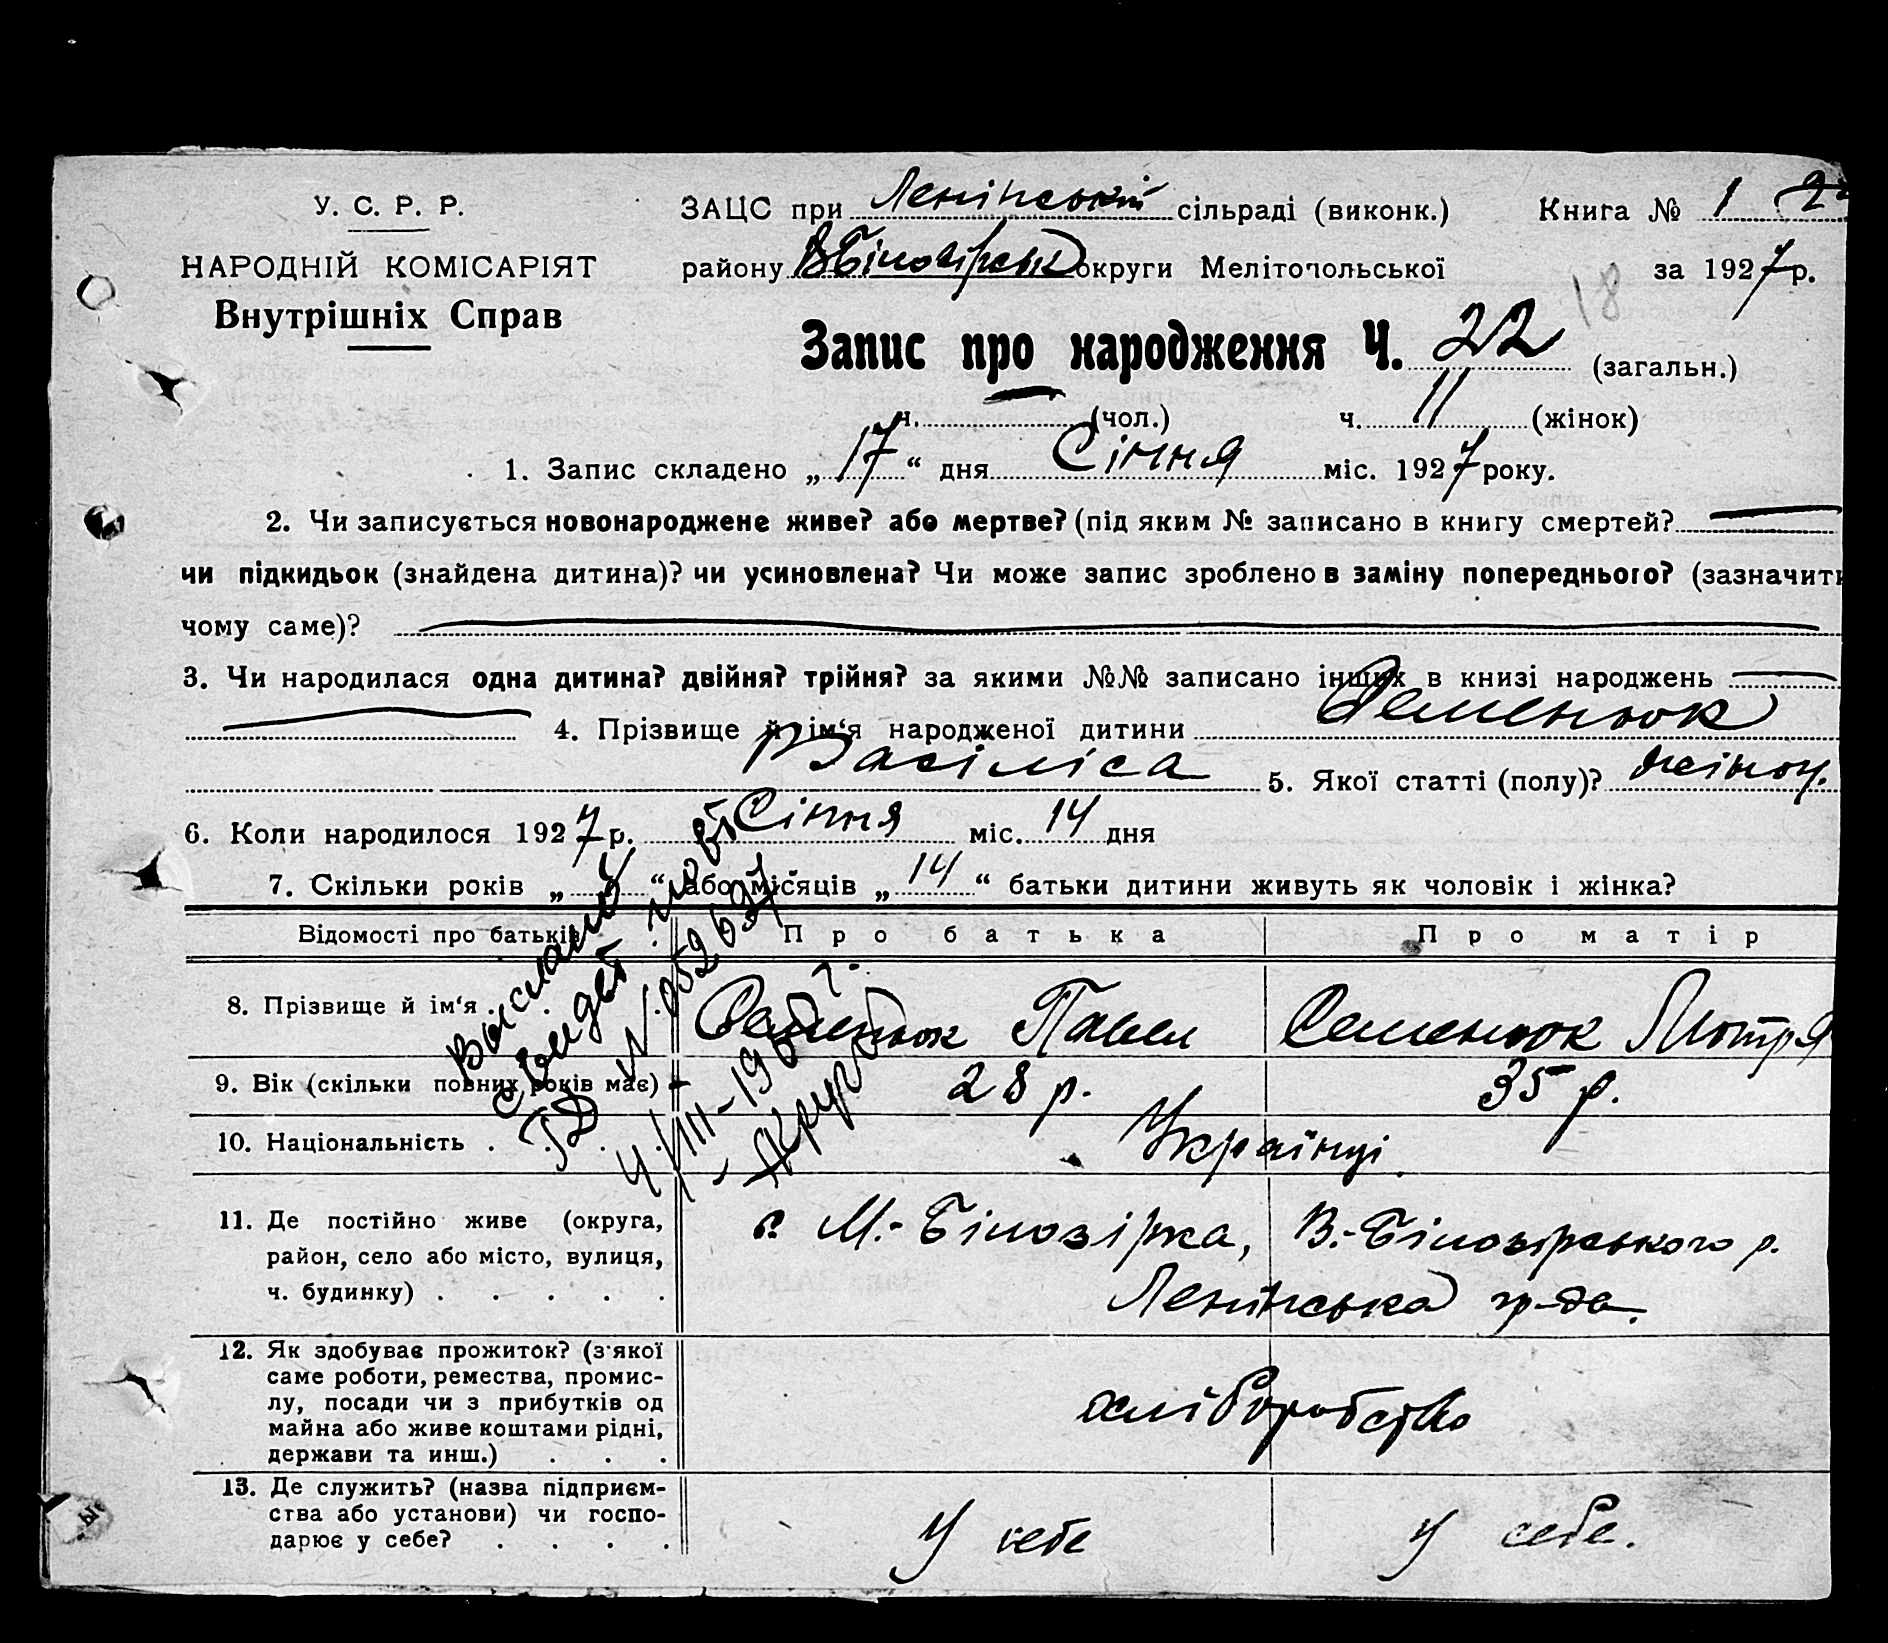 У. С. Р. Р.
НАРОДНІЙ КОМІСАРІЯТ
Внутрішніх Справ
ЗАЦС при Ленінській сільраді (виконк.) Книга № 1
району ВБілозірськ округи Мелітопольської за 1927 р.
18
Запис про народження Ч. 22 (загальн.)
ч. — (чол.) ч. 11 (жінок)
1. Запис складено „17“ дня Січня міс. 1927 року.
2. Чи записується новонароджене живе? або мертве? (під яким № записано в книгу смертей?
чи підкидьок (знайдена дитина)? чи усиновлена? Чи може запис зроблено в заміну попереднього? (зазначити
чому саме)?
3. Чи народилася одна дитина? двійня? трійня? за якими №№ записано інших в книзі народжень
4. Прізвище й ім‘я народженої дитини Семенюк
Васіліса 5. Якої статті (полу)? жіноч.
6. Коли народилося 1927 р. Січня міс. 14 дня
7. Скільки років „ “ або місяців „14“ батьки дитини живуть як чоловік і жінка?
Відомості про батьків Про батька Про матір
8. Прізвище й ім‘я . . . Семенюк Павел Семенюк Мотря
9. Вік (скільки повних років має) - 28 р. 35 р.
10. Національність . . . . Українці
11. Де постійно живе (округа, район, село або місто, вулиця, ч. будинку) . . . . .
с. М.-Білозірка, В.-Білозірського р.
Ленінська гр-да.
12. Як здобуває прожиток? (з'якої саме роботи, ремества, промислу, посади чи з прибутків од майна або живе коштами рідні, держави та инш.) . . .
хліборобство
13. Де служить? (назва підприємства або установи) чи господарює у себе? . . . .
У себе У себе.